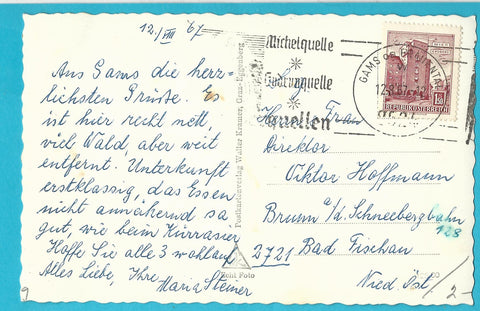 12./VIII 67
Aus Gams die herz-
lichsten Grüsse. Es
ist hier recht nett,
viel Wald, aber weit
entfernt. Unterkunft
erstklassig, das Essen
nicht annähernd so
gut, wie beim Kürrasier
Hoffe Sie alle 3 wohlauf
Alles Liebe, Ihre
Maria Steiner
9
Postkartenverlag Walter Kramer, Graz-Eggenberg
Echt Foto
Michelquelle
Gudrunquelle
quellen
GAMS OB
12.8.67
8524
REPUBLIK ÖSTERREICH
Frau
Direktor
Viktor Hoffmann
Brunn a/d. Schneebergbahn
128
2721 Bad Fischau
Nied. Öst.
/2-